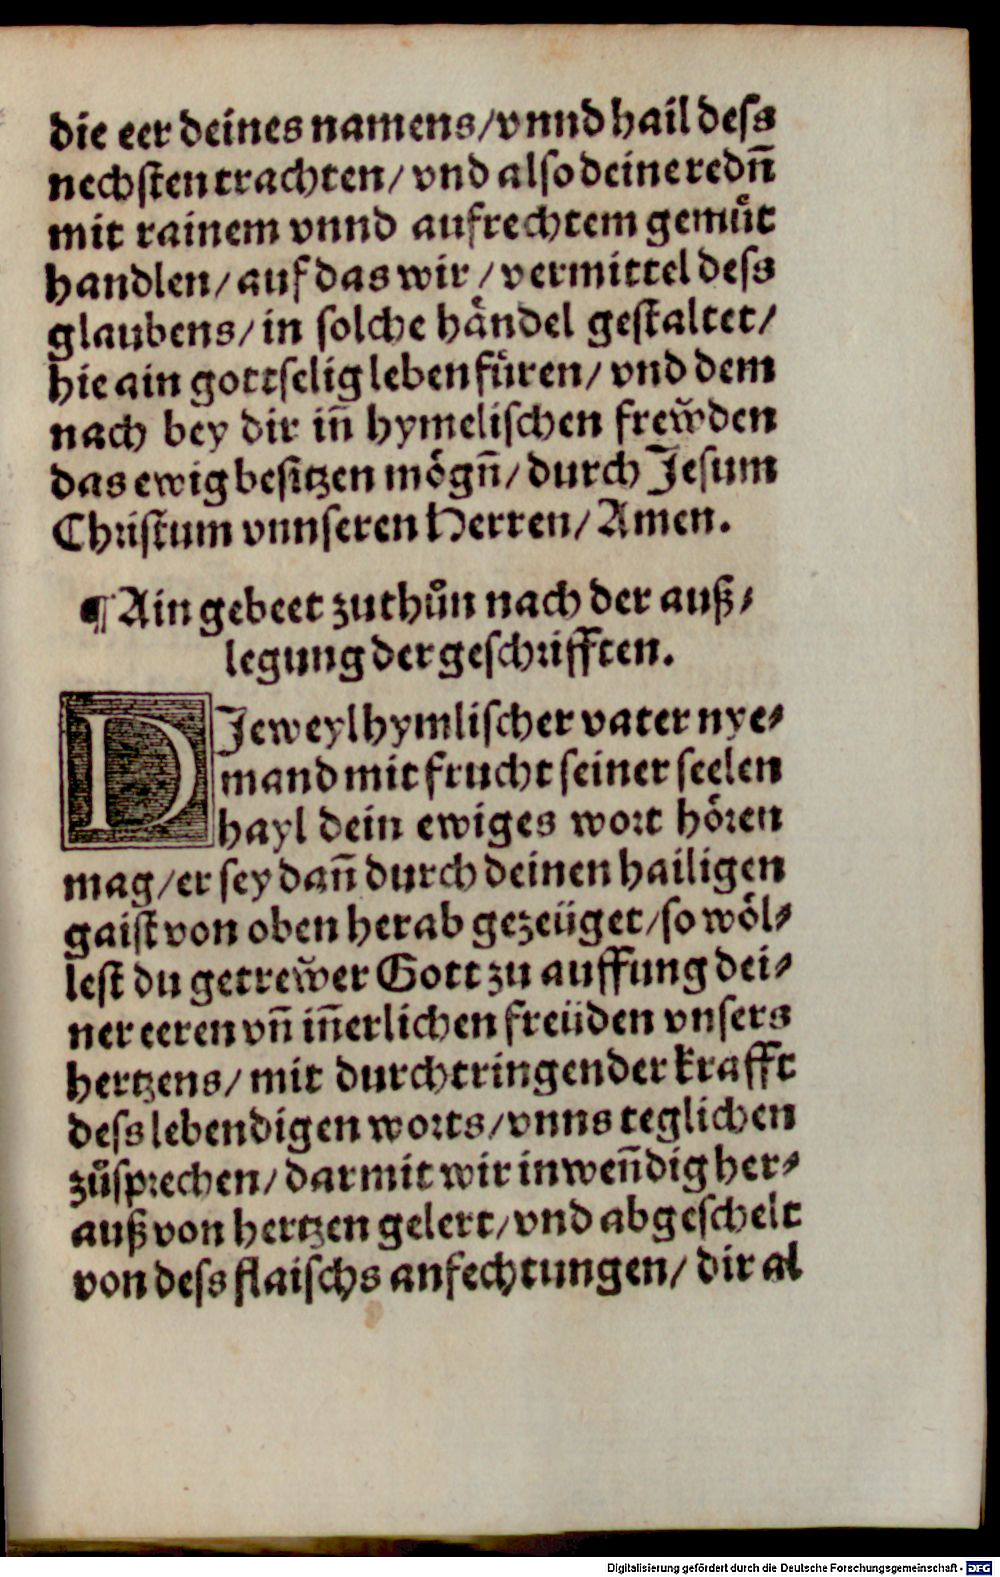 die eer deines namens/vnnd hail deſs
nechſten trachten/ vnd alſo deine redn̄
mit rainem vnnd aufrechtem gemuͤt
handlen/ auf das wir / vermittel deſs
glaubens/ in ſolche haͤndel geſtaltet/
hie ain gottſelig leben fuͤren/ vnd dem
nach bey dir in̄ hymeliſchen frew̆den
das ewig beſitzen moͤgn̄/ durch Jeſum
Chriſtum vnnſeren Herren/ Amen.
¶ Ain gebeet zuthuͦn nach der auß⸗
legung der geſchrifften.
DJeweyl hymliſcher vater nye⸗
mand mit frucht ſeiner ſeelen
hayl dein ewiges wort hoͤren
mag/er ſey dan̄ durch deinen hailigen
gaiſt von oben herab gezeüget/ſo woͤl⸗
leſt du getrew̆er Gott zu auffung dei⸗
ner eeren vn̄ in̄erlichen freüden vnſers
hertzens/ mit durchtringender krafft
deſs lebendigen worts/vnns teglichen
zuͦſprechen/ darmit wir inwen̄dig her⸗
auß von hertzen gelert/vnd abgeſchelt
von deſs flaiſchs anfechtungen/ dir al
Digitalisierung gefördert durch die Deutsche Forschungsgemeinschaft - DFG